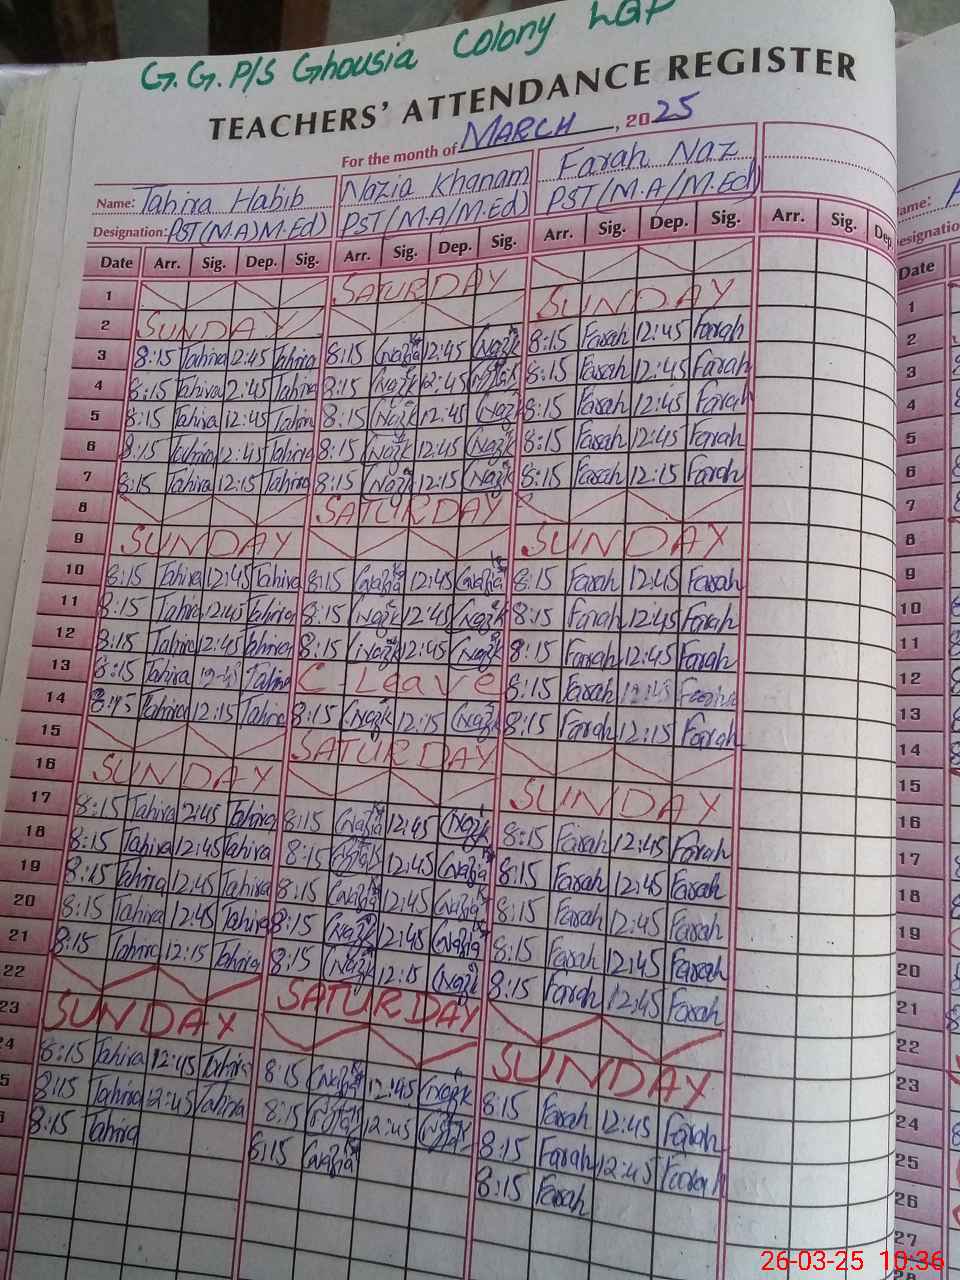 G.G.P/S Ghousia Colony LGP
TEACHERS' ATTENDANCE REGISTER
For the month of MARCH, 2025
Name: Tahira Habib Nazia Khanam Farah Naz
Designation: PST(M.A)M.Ed) PST(M.A/M.Ed) PST(M.A/M.Ed)
Date Arr. Sig. Dep. Sig. Arr. Sig. Dep. Sig. Arr. Sig. Dep. Sig. Arr. Sig. Dep.
1 SATURDAY
2 SUNDAY SUNDAY
3 8:15 Tahira 12:45 Tahira 8:15 Nazia 12:45 8:15 Farah 12:45 Farah
4 8:15 Tahira 12:45 Tahira 8:15 12:45 8:15 Farah 12:45 Farah
5 8:15 Tahira 12:45 Tahira 8:15 12:45 8:15 Farah 12:45 Farah
6 8:15 Tahira 12:45 Tahira 8:15 12:45 8:15 Farah 12:45 Farah
7 8:15 Tahira 12:15 Tahira 8:15 12:15 8:15 Farah 12:15 Farah
8 SATURDAY
9 SUNDAY SUNDAY
10 8:15 Tahira 12:45 Tahira 8:15 Nazia 12:45 Nazia 8:15 Farah 12:45 Farah
11 8:15 Tahira 12:45 Tahira 8:15 12:45 8:15 Farah 12:45 Farah
12 8:15 Tahira 12:45 Tahira 8:15 12:45 8:15 Farah 12:45 Farah
13 8:15 Tahira Tahira C-Leave 8:15 Farah 12:45
14 8:15 Tahira 12:15 Tahira 8:15 12:15 8:15 Farah 12:15 Farah
15 SATURDAY
16 SUNDAY SUNDAY
17 8:15 Tahira 12:45 Tahira 8:15 Nazia 12:45 8:15 Farah 12:45 Farah
18 8:15 Tahira 12:45 Tahira 8:15 12:45 Nazia 8:15 Farah 12:45 Farah
19 8:15 Tahira 12:45 Tahira 8:15 Nazia 12:45 Nazia 8:15 Farah 12:45 Farah
20 8:15 Tahira 12:45 Tahira 8:15 12:45 Nazia 8:15 Farah 12:45 Farah
21 8:15 Tahira 12:15 Tahira 8:15 12:15 8:15 Farah 12:45 Farah
22 SATURDAY
23 SUNDAY SUNDAY
24 8:15 Tahira 12:45 Tahira 8:15 Nazia 12:45 8:15 Farah 12:45 Farah
5 8:15 Tahira 12:45 Tahira 8:15 12:45 8:15 Farah 12:45 Farah
8:15 Tahira 8:15 Nazia 8:15 Farah
ame:
esignation
Date
1
2
3
4
5
6
7
8
9
10
11
12
13
14
15
16
17
18
19
20
21
22
23
24
25
26
27
26-03-25 10:36